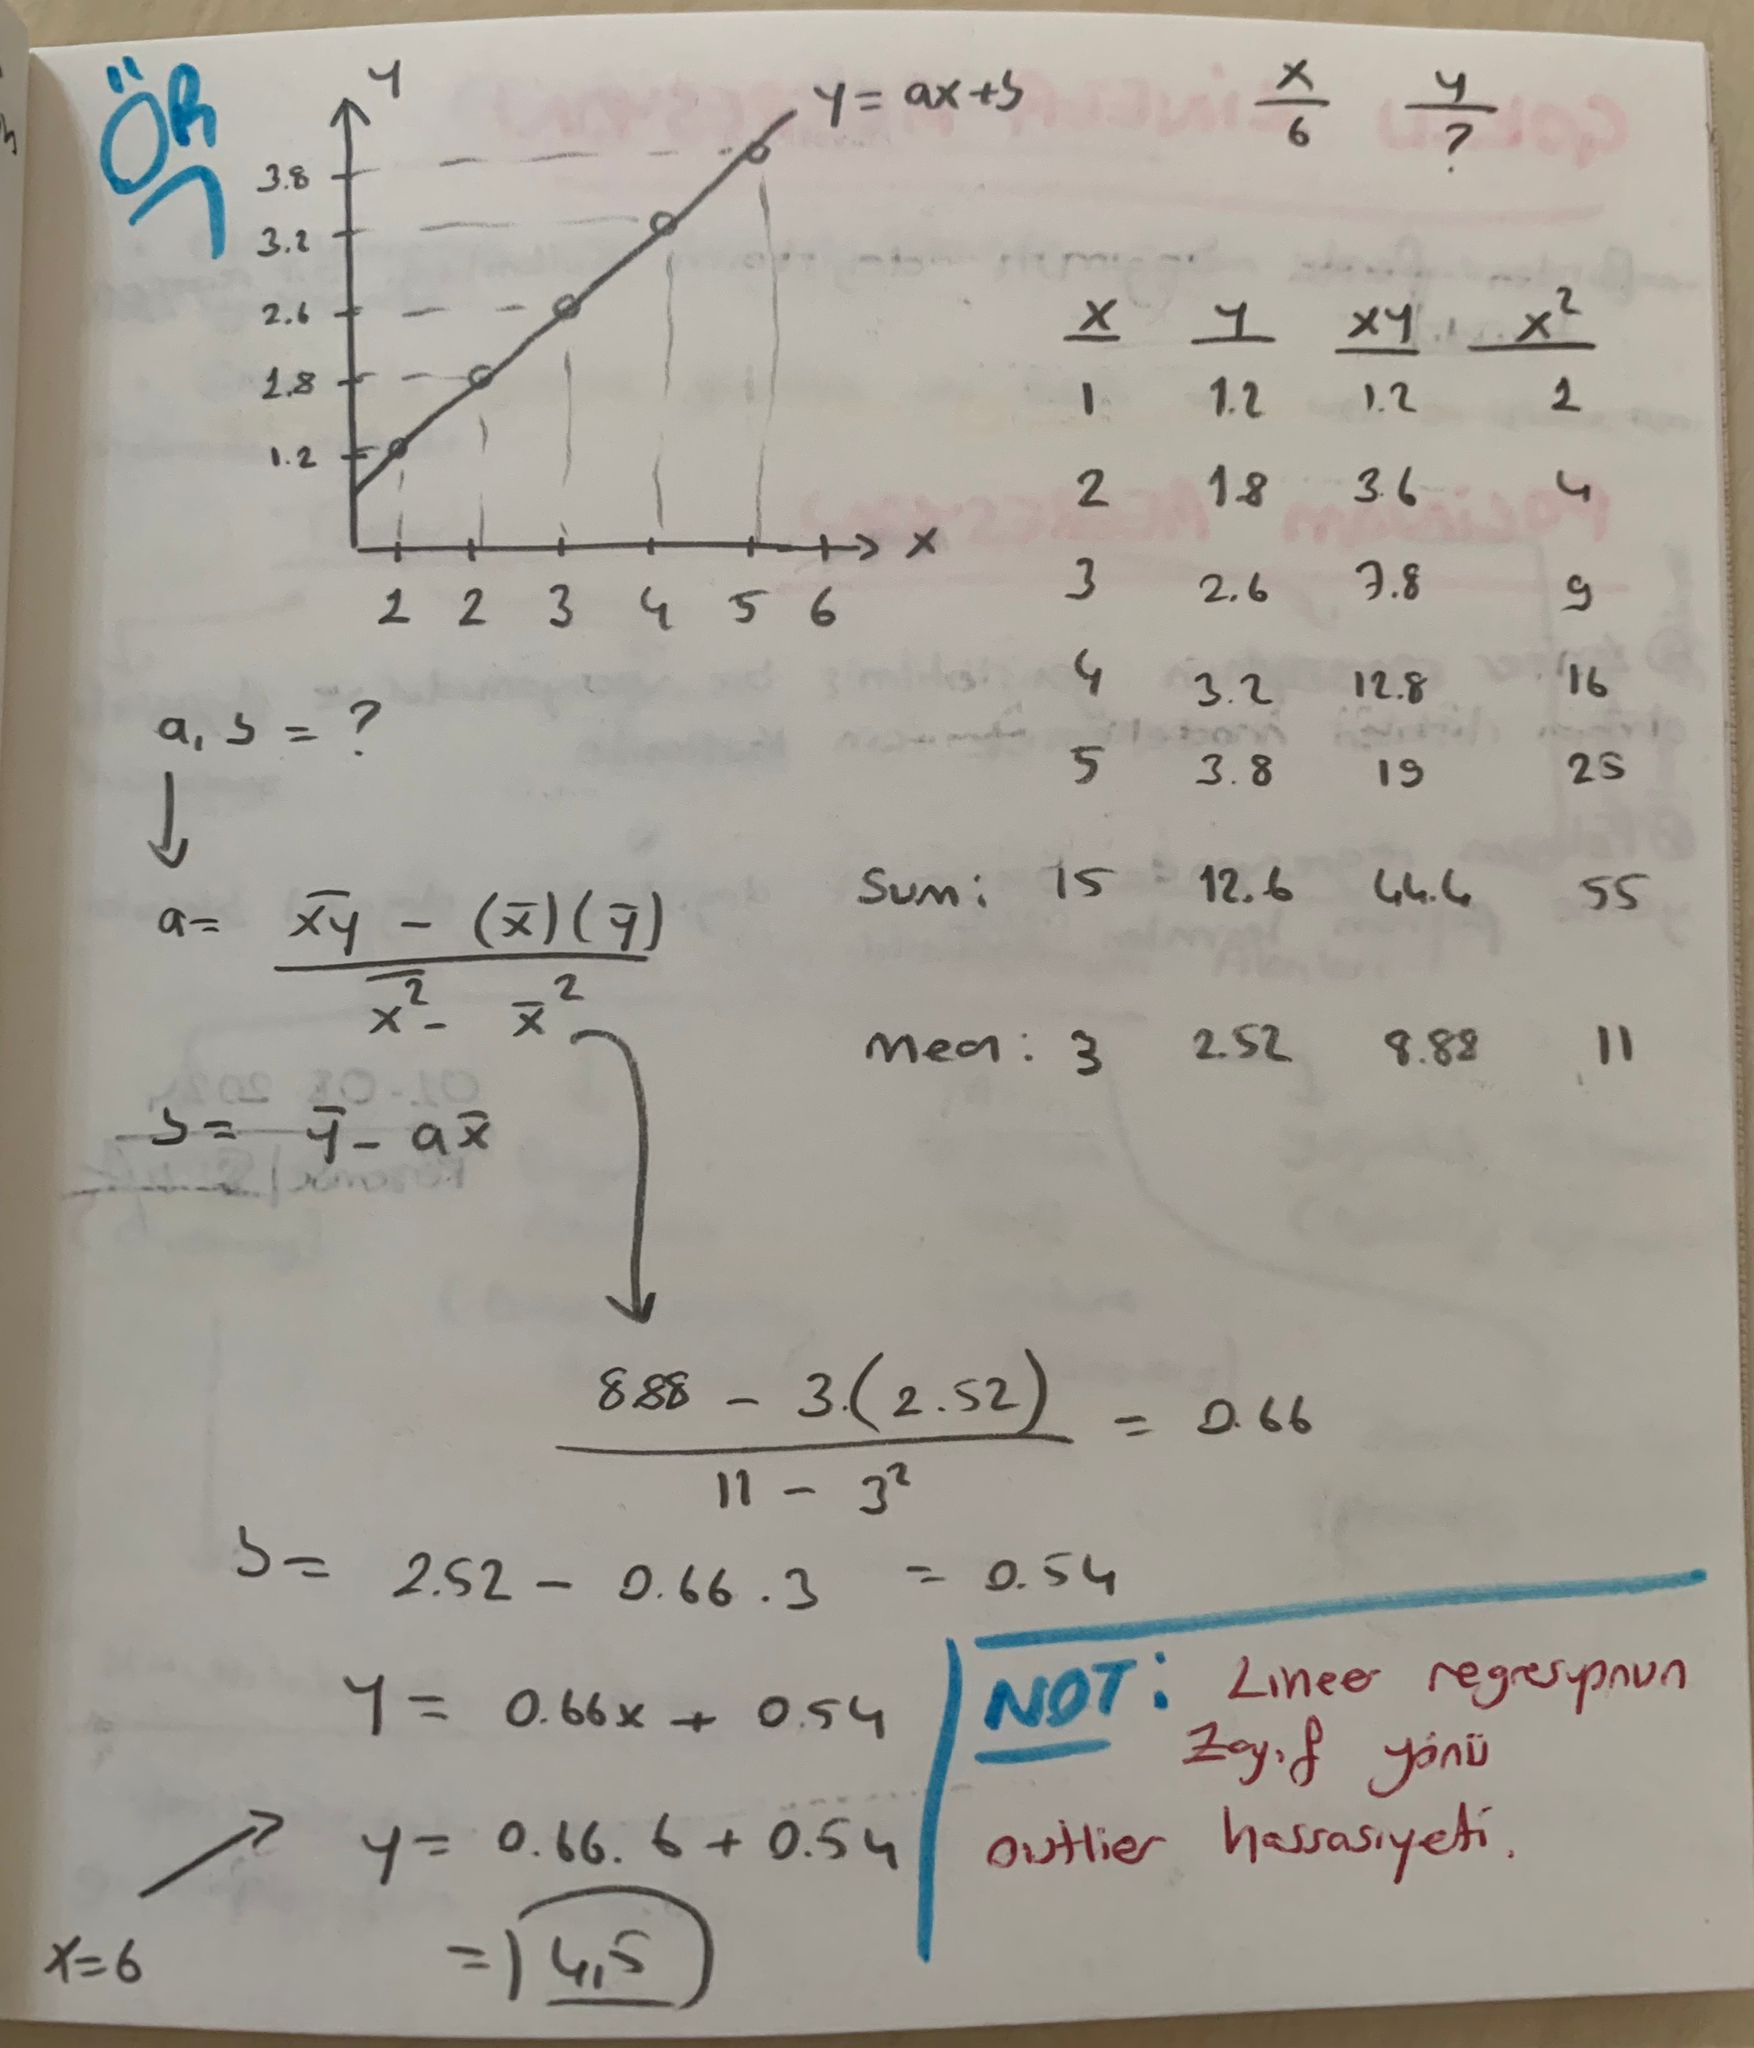 ÖR
y
y = ax+b
3.8
3.2
2.6
1.8
1.2
1 2 3 4 5 6
x
x y
6 ?
x y xy x²
1 1.2 1.2 1
2 1.8 3.6 4
3 2.6 7.8 9
4 3.2 12.8 16
5 3.8 19 25
Sum: 15 12.6 44.4 55
Mean: 3 2.52 8.88 11
a, b = ?
↓
a = (x̄ȳ - (x̄)(ȳ)) / (x̄² - x̄²)
b = ȳ - ax̄
8.88 - 3.(2.52) = 0.66
11 - 3²
b = 2.52 - 0.66 . 3 = 0.54
y = 0.66x + 0.54
y = 0.66. 6 + 0.54
x=6
= 4,5
NOT: Lineer regresyonun
Zayıf yönü
outlier hassasiyeti.